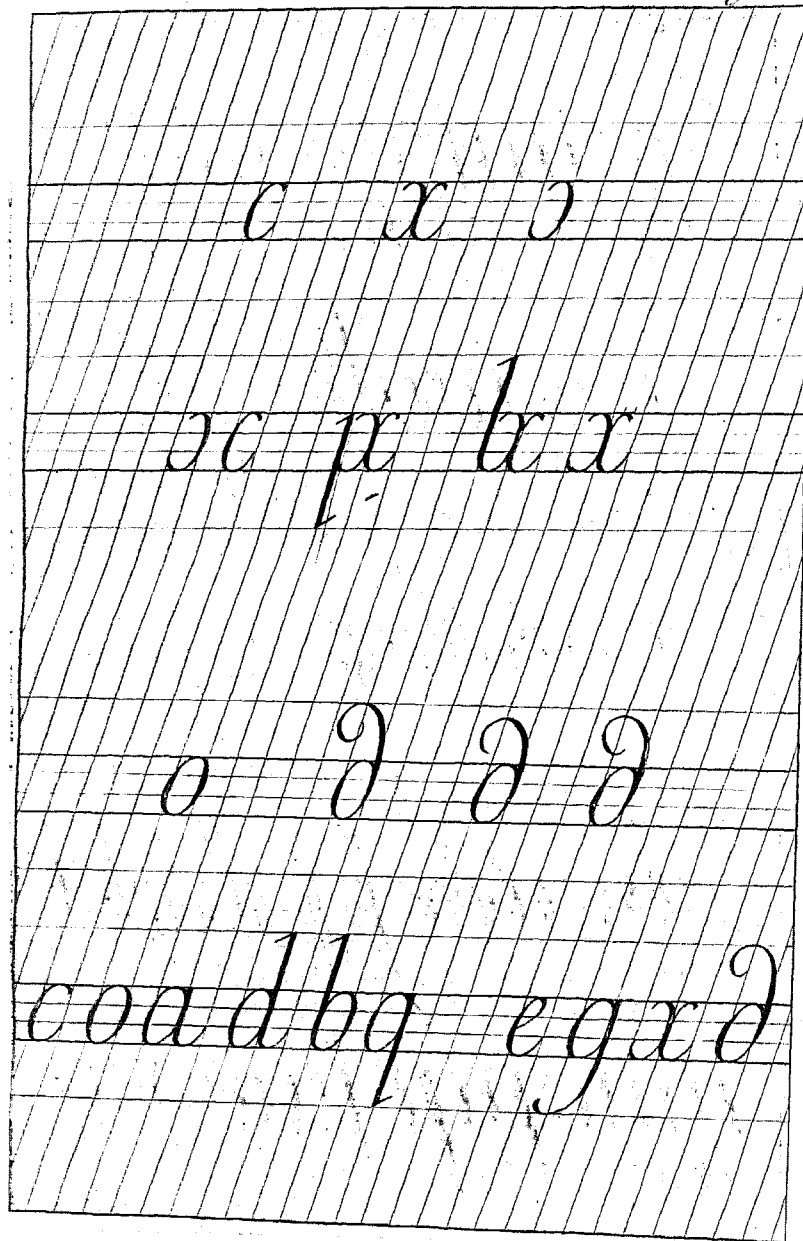 c x ɔ
ɔc px lx x
o ∂ ∂ ∂
coadbq egx∂